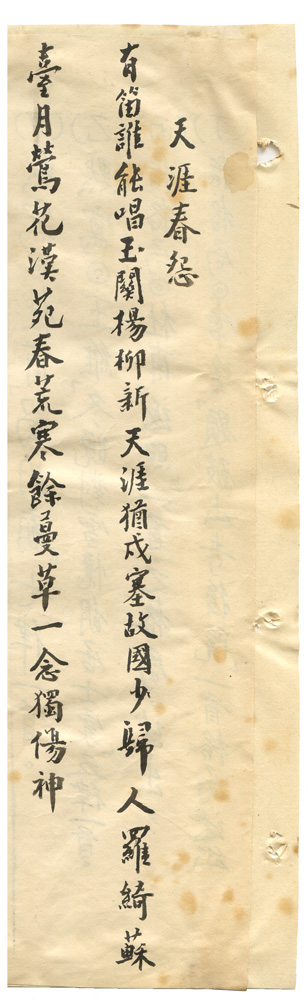 天涯春怨
有笛誰能唱玉關楊柳新天涯猶戍塞故國少歸人羅綺蘇
臺月鶯花漢苑春荒寒餘蔓草一念獨傷神